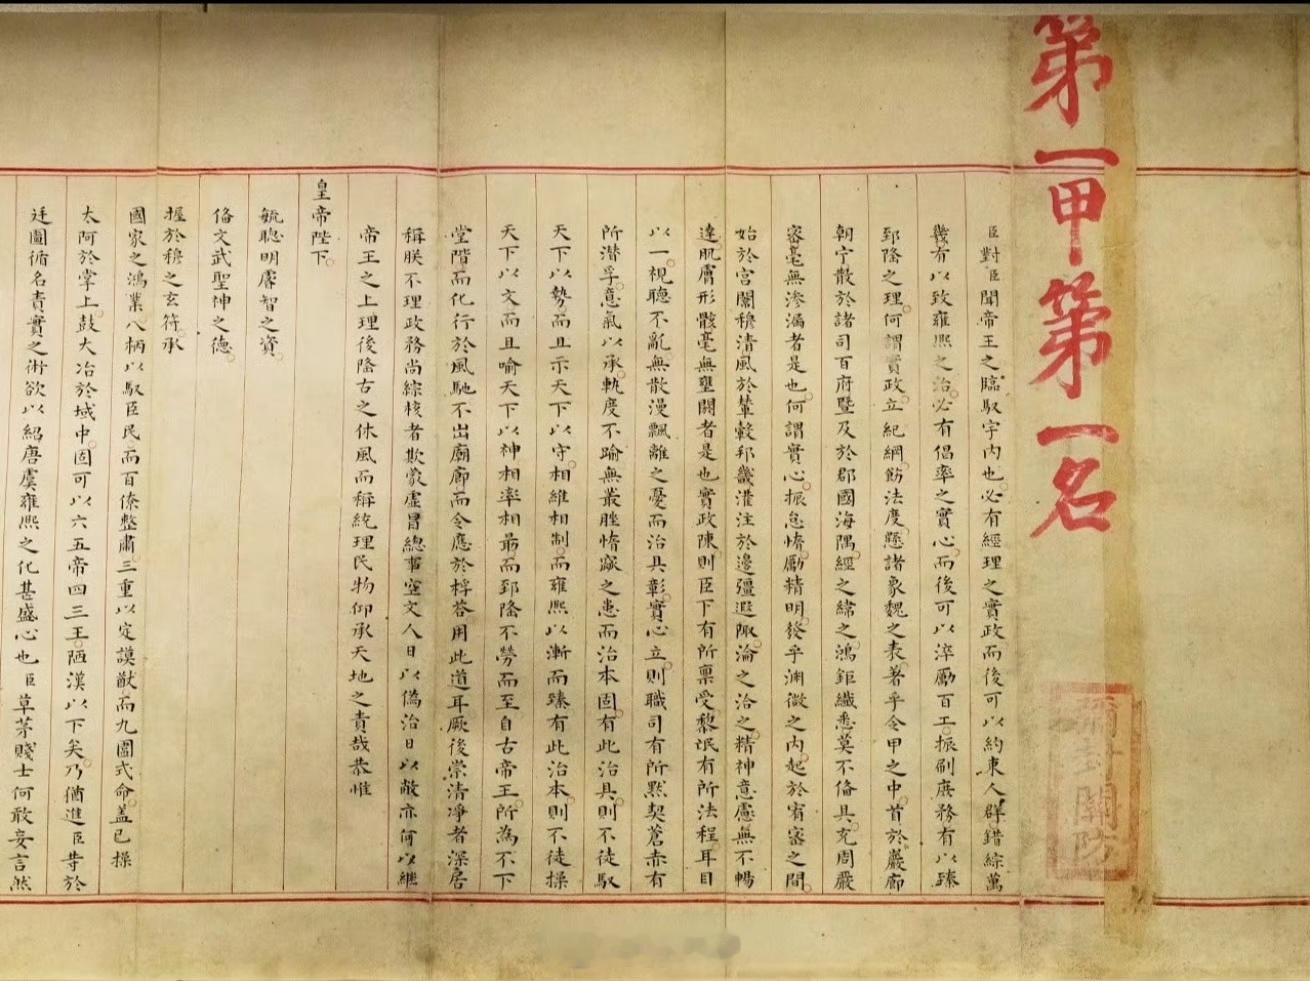 第一甲第一名
彌封關防
臣對臣聞帝王之臨馭宇內也必有經理之實政而後可以約束人群錯綜萬
幾有以致雍熙之治必有倡率之實心而後可以淬勵百工振刷庶務有以臻
郅隆之理何謂實政立紀綱飭法度懸諸象魏之表著乎令甲之中首於巖廊
朝宁散於諸司百府暨及於郡國海隅經之緯之鴻鉅纖悉莫不備具充周嚴
密毫無滲漏者是也何謂實心振怠惰勵精明發乎淵微之內起於宥密之間
始於宮闈穆清風於輦轂邦畿灌注於邊疆遐陬淪之洽之精神意慮無不暢
達肌膚形骸毫無壅閼者是也實政陳則臣下有所稟受黎氓有所法程耳目
以一視聽不亂無散漫飄離之憂而治具彰實心立則職司有所默契蒼赤有
所潛孚意氣以承軌度不踰無叢脞惰窳之患而治本固有此治具則不徒馭
天下以勢而且示天下以守相維相制而雍熙以漸而臻有此治本則不徒操
天下以文而且喻天下以神相率相勗而郅隆不勞而至自古帝王所為不下
堂階而化行於風馳不出廟廊而令應於桴荅用此道耳厥後崇清凈者深居
稱朕不理政務尚綜核者欺蒙虛冒總事空文人日以偽治日以敝亦何以繼
帝王之上理後隆古之休風而稱統理民物仰承天地之責哉恭惟
皇帝陛下
毓聰明睿智之資
備文武聖神之德
握於穆之玄符承
國家之鴻業八柄以馭臣民而百僚整肅三重以定謨猷而九圍式命蓋已操
太阿於掌上鼓大冶於域中固可以六五帝四三王陋漢以下矣乃猶進臣等於
廷圖循名責實之術欲以紹唐虞雍熙之化甚盛心也臣草茅賤士何敢妄言然